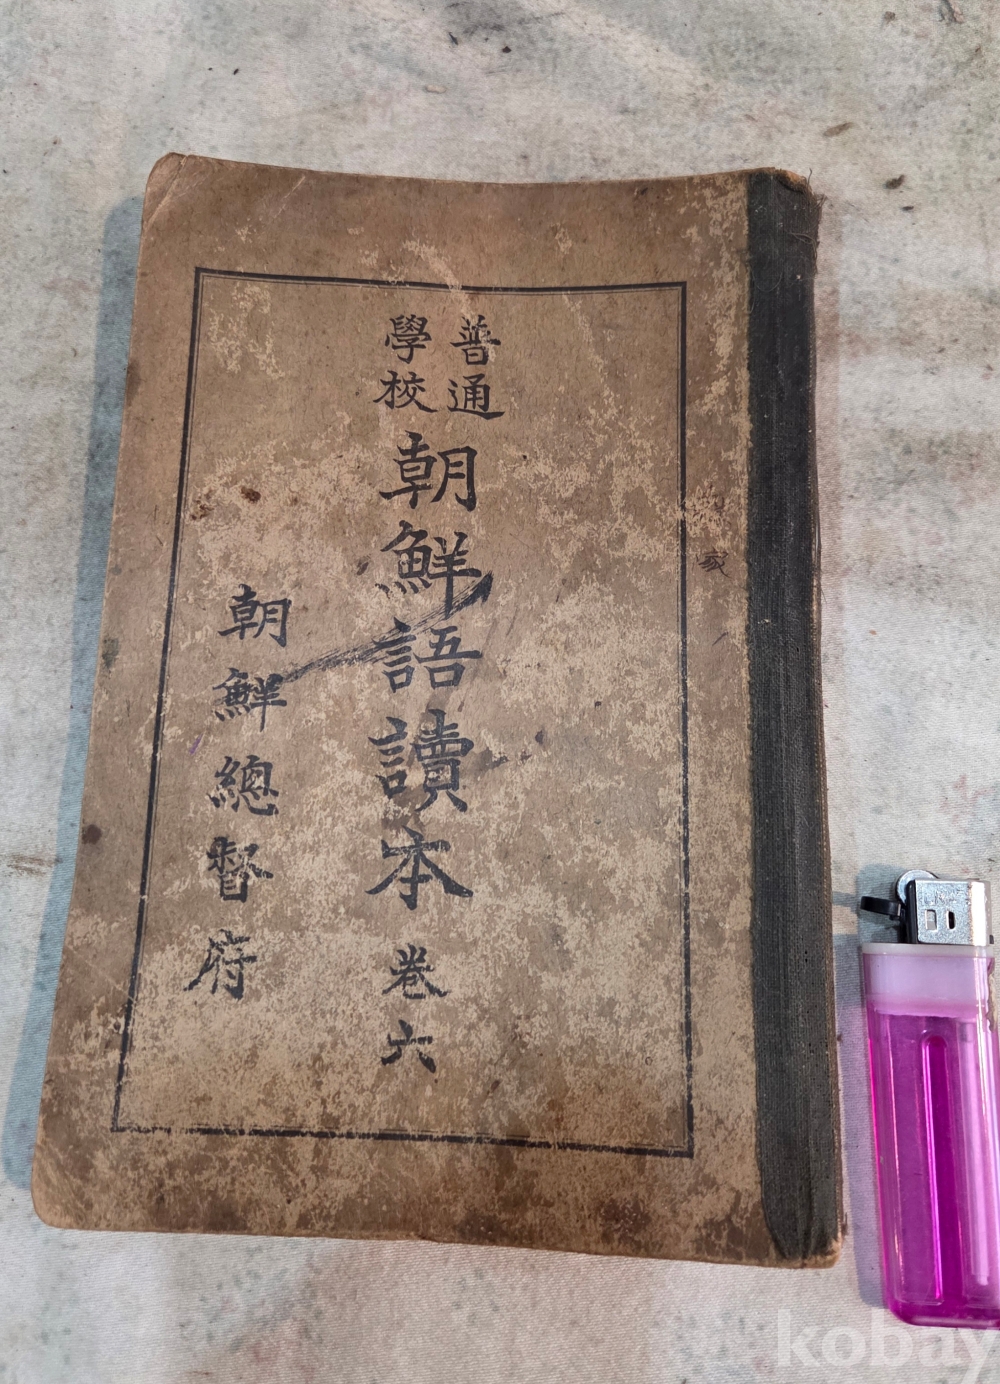 普通
學校
朝鮮語讀本 卷六
朝鮮總督府
家
kobay